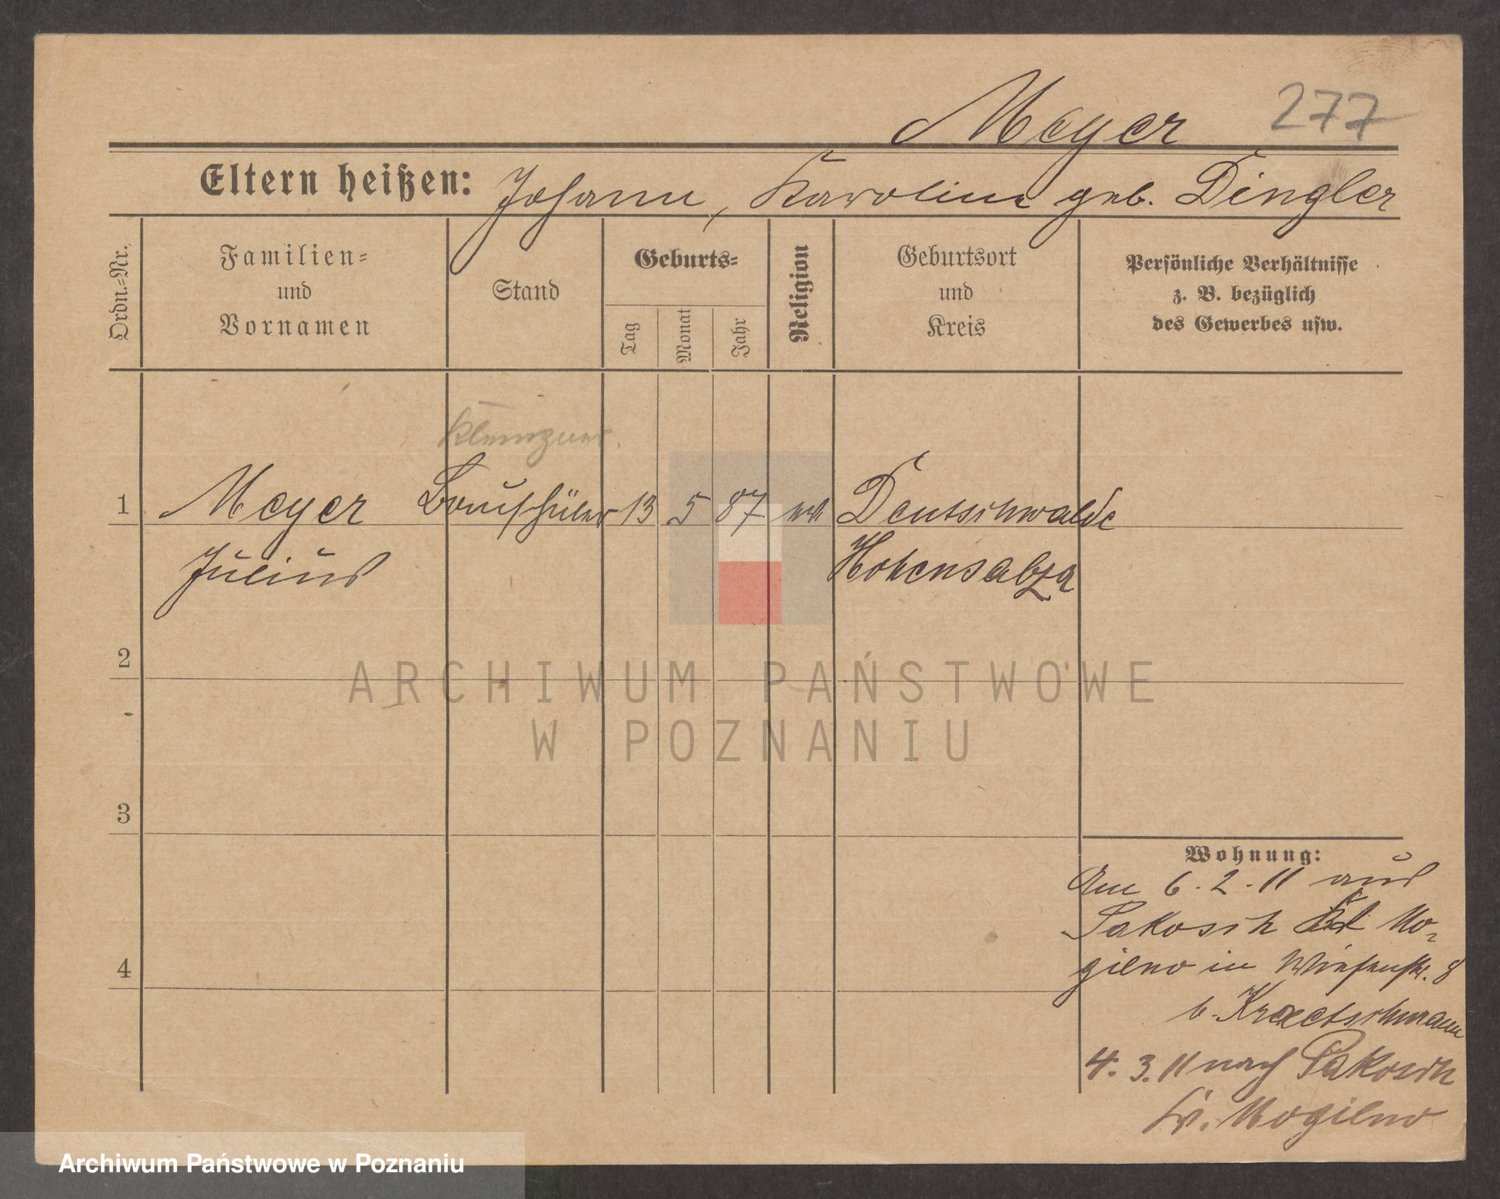 Meyer 277
Eltern heißen: Johann, Karoline geb. Dingler
Ordn.-Nr.
Familien-
und
Vornamen
Stand
Geburts-
Tag
Monat
Jahr
Religion
Geburtsort
und
Kreis
Persönliche Verhältnisse
z. B. bezüglich
des Gewerbes usw.
1 Meyer 13 5 87 Deutschwalde
Julius Hohensalza
2
3
4
Wohnung:
Am 6.2.11 aus
Pakosch Mo-
gilno in Wiesenstr. 8
b. Kraetschmann
4.3.11 nach Pakosch
Kr. Mogilno
ARCHIWUM PAŃSTWOWE
W POZNANIU
Archiwum Państwowe w Poznaniu